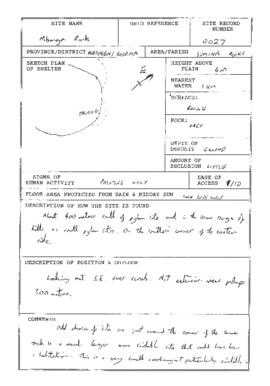 SITE NAME
GRID REFERENCE
SITE RECORD NUMBER
0027
PROVINCE/DISTRICT
AREA/PARISH
SKETCH PLAN OF SHELTER
HEIGHT ABOVE PLAIN 6m
NEAREST WATER 1 km
SURFACE:
ROUGH
ROCK:
GREY
DEPTH OF DEPOSIT
AMOUNT OF SECLUSION LITTLE
SIGNS OF HUMAN ACTIVITY PAINTING ONLY
EASE OF ACCESS 9/10
FLOOR AREA PROTECTED FROM RAIN & MIDDAY SUN
DESCRIPTION OF HOW THE SITE IS FOUND
About 400 metres south of pylon site and in the same range of
hills as south pylon site. On the southern corner of the eastern
side.
DESCRIPTION OF POSITION & OUTLOOK
Looking out S.E. over scrub. N.T extensive view perhaps
300 metres.
COMMENTS
Odd choice of site as just around the corner of the same
rock is a much larger more visible site that could have been
a habitation. This is a very small overhang not particularly visible.